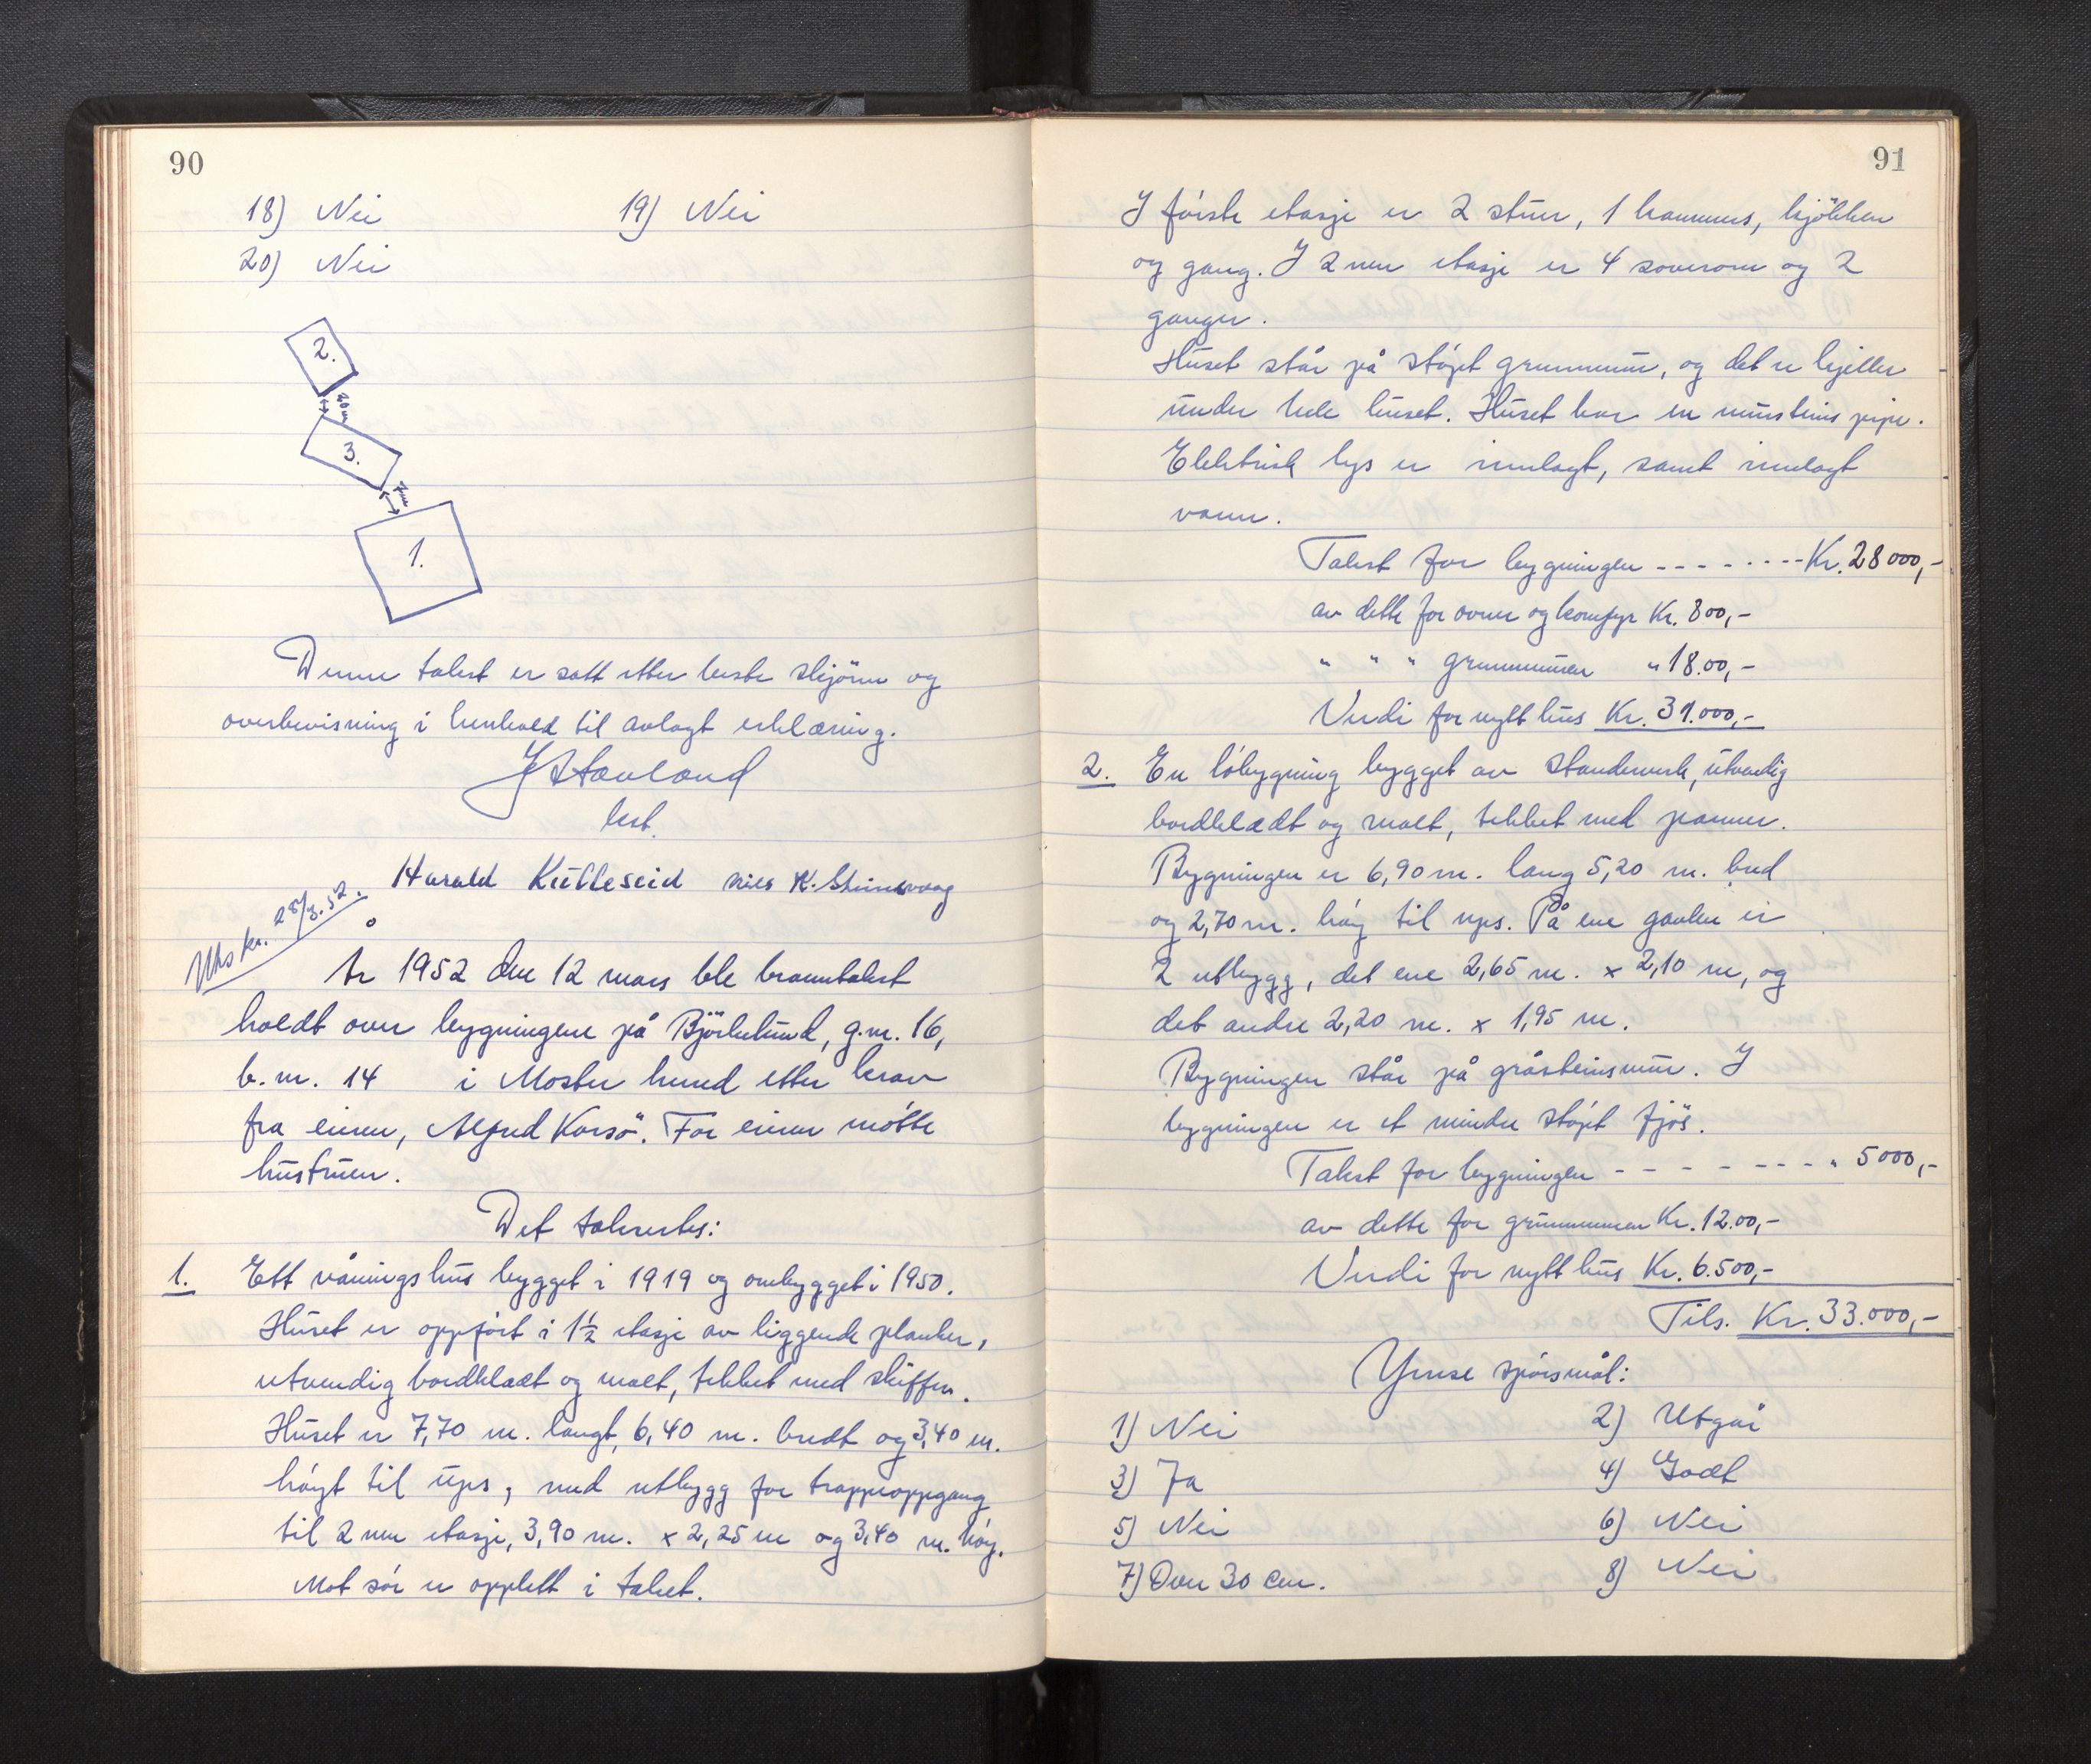 90
18) Nei 19) Nei
20) Nei
2.
20 m
3.
7 m
1.
Denne takst er satt etter beste skjönn og
overbevisning i henhold til avlagt erklæring.
lest.
Harald Kulleseid Nils K. Steinsvaag
Utskr. 28/3.52.
År 1952 den 12 mars ble branntakst
holdt over bygningene på Björkelund, g.nr. 16,
b.nr. 14 i Moster herred etter krav
fra eieren, Alfred Korsö. For eieren mötte
hustruen.
Det taksertes:
1. Ett våningshus bygget i 1919 og ombygget i 1950.
Huset er oppfört i 1½ etasje av liggende planker,
utvendig bordkledt og malt, tekket med skiffer.
Huset er 7,70 m. langt, 6,40 m. bredt og 3,40 m.
höyt til ups, med utbygg for trappeoppgang
til 2nen etasje, 3,90 m. x 2,25 m og 3,40 m. höy.
Mot sör er opplett i taket.
91
I förste etasje er 2 stuer, 1 kammers, kjökken
og gang. I 2nen etasje er 4 soverom og 2
ganger.
Huset står på stöpt grunnmur, og det er kjeller
under hele huset. Huset har en mursteins pipe.
Elektrisk lys er innlagt, samt innlagt
vann.
Takst for bygningen - - - - - - - - Kr. 28000,-
av dette for ovner og komfyr Kr. 800,-
" " " grunnmuren " 18.00,-
Verdi for nytt hus Kr. 31.000,-
2. En löbygning bygget av standerverk, utvendig
bordkledt og malt, tekket med panner.
Bygningen er 6,90 m. lang 5,20 m. bred
og 2,70 m. höy til ups. På ene gavlen er
2 utbygg, det ene 2,65 m. x 2,10 m, og
det andre 2,20 m. x 1,95 m.
Bygningen står på gråsteinsmur. I
bygningen er et mindre stöpt fjös.
Takst for bygningen - - - - - - - - " 5000,-
av dette for grunnmuren Kr. 12.00,-
Verdi for nytt hus Kr. 6.500,-
Tils. Kr. 33.000,-
Ymse spörsmål:
1) Nei 2) Utgår
3) Ja 4) Godt
5) Nei 6) Nei
7) Over 30 cm. 8) Nei